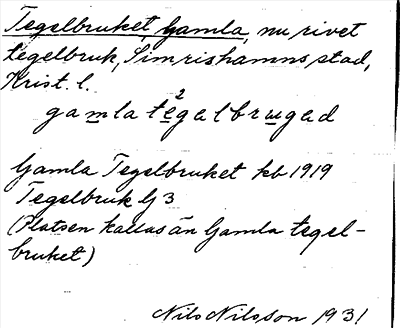 Tegelbruket, Gamla, nu rivet
tegelbruk, Simrishamns stad,
Krist. l.
gamla te²galbrugad
Gamla Tegelbruket kb 1919
Tegelbruk G 3
(Platsen kallas än Gamla tegel-
bruket)
Nils Nilsson 1931